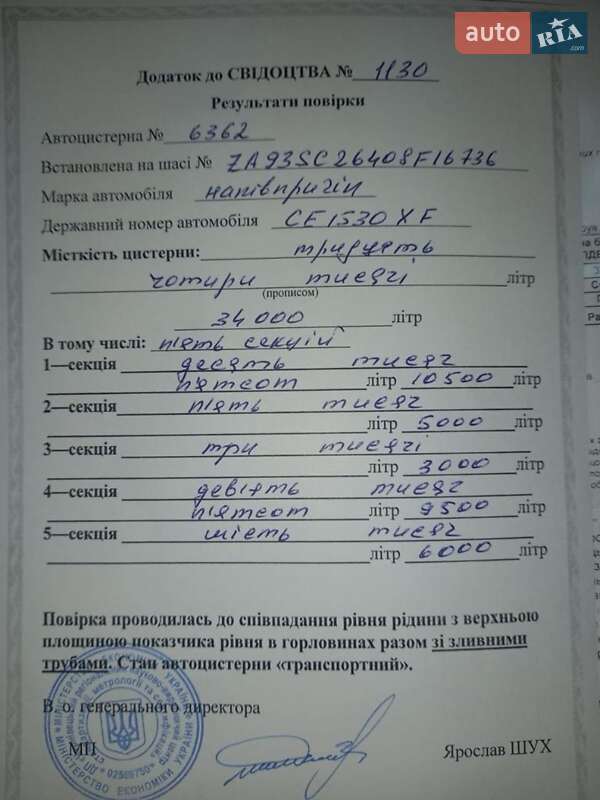 auto RIA.com
Додаток до СВІДОЦТВА № 1130
Результати повірки
Автоцистерна № 6362
Встановлена на шасі № ZA93SC26408F16736
Марка автомобіля напівпричіп
Державний номер автомобіля СЕ1530ХF
Місткість цистерни: тридцять
чотири тисячі літр
(прописом)
34000 літр
В тому числі: п'ять секцій
1—секція десять тисяч
п'ятсот літр 10500 літр
2—секція п'ять тисяч
літр 5000 літр
3—секція три тисячі
літр 3000 літр
4—секція дев'ять тисяч
п'ятсот літр 9500 літр
5—секція шість тисяч
літр 6000 літр
Повірка проводилась до співпадання рівня рідини з верхньою
площиною показчика рівня в горловинах разом зі зливними
трубами. Стан автоцистерни «транспортний».
В. о. генерального директора
МП Ярослав ШУХ
МІНІСТЕРСТВО ЕКОНОМІКИ УКРАЇНИ